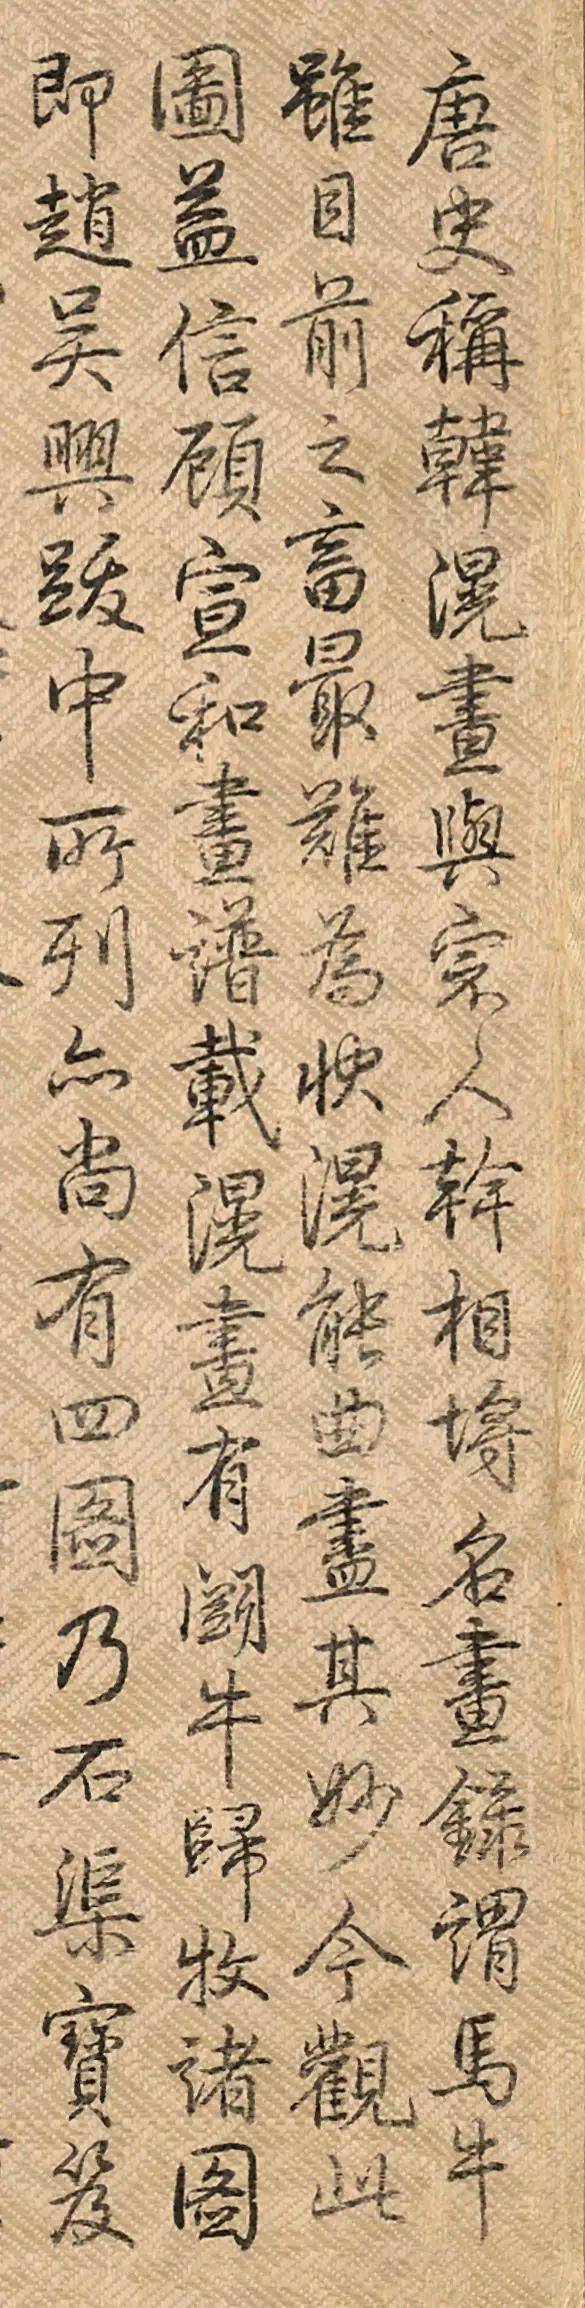 唐史稱韓滉畫與宗人幹相埒名畫錄謂馬牛
雖目前之畜最難為狀滉能曲盡其妙今觀此
圖益信顧宣和畫譜載滉畫有鬭牛歸牧諸圖
即趙吳興跋中所列亦尚有四圖乃石渠寶笈